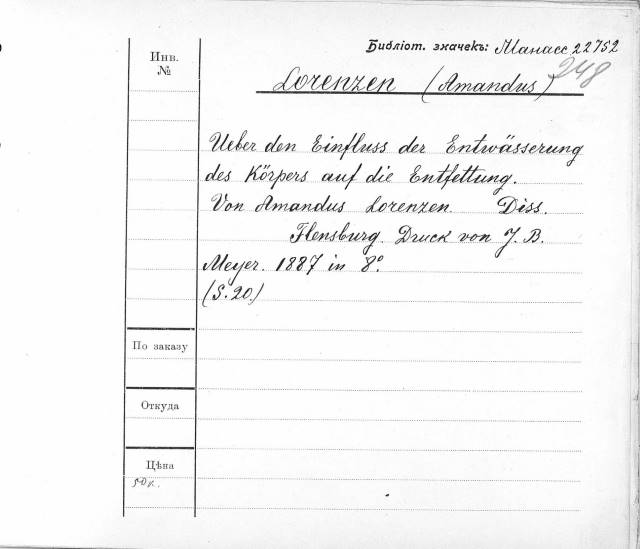 Библіот. значекъ: Манасс 22752
248
Инв.
№
Lorenzen (Amandus)
Ueber den Einfluss der Entwässerung
des Körpers auf die Entfettung.
Von Amandus Lorenzen. Diss.
Flensburg. Druck von J. B.
Meyer. 1887 in 8°.
(S. 20.)
По заказу
Откуда
Цѣна
50 к.